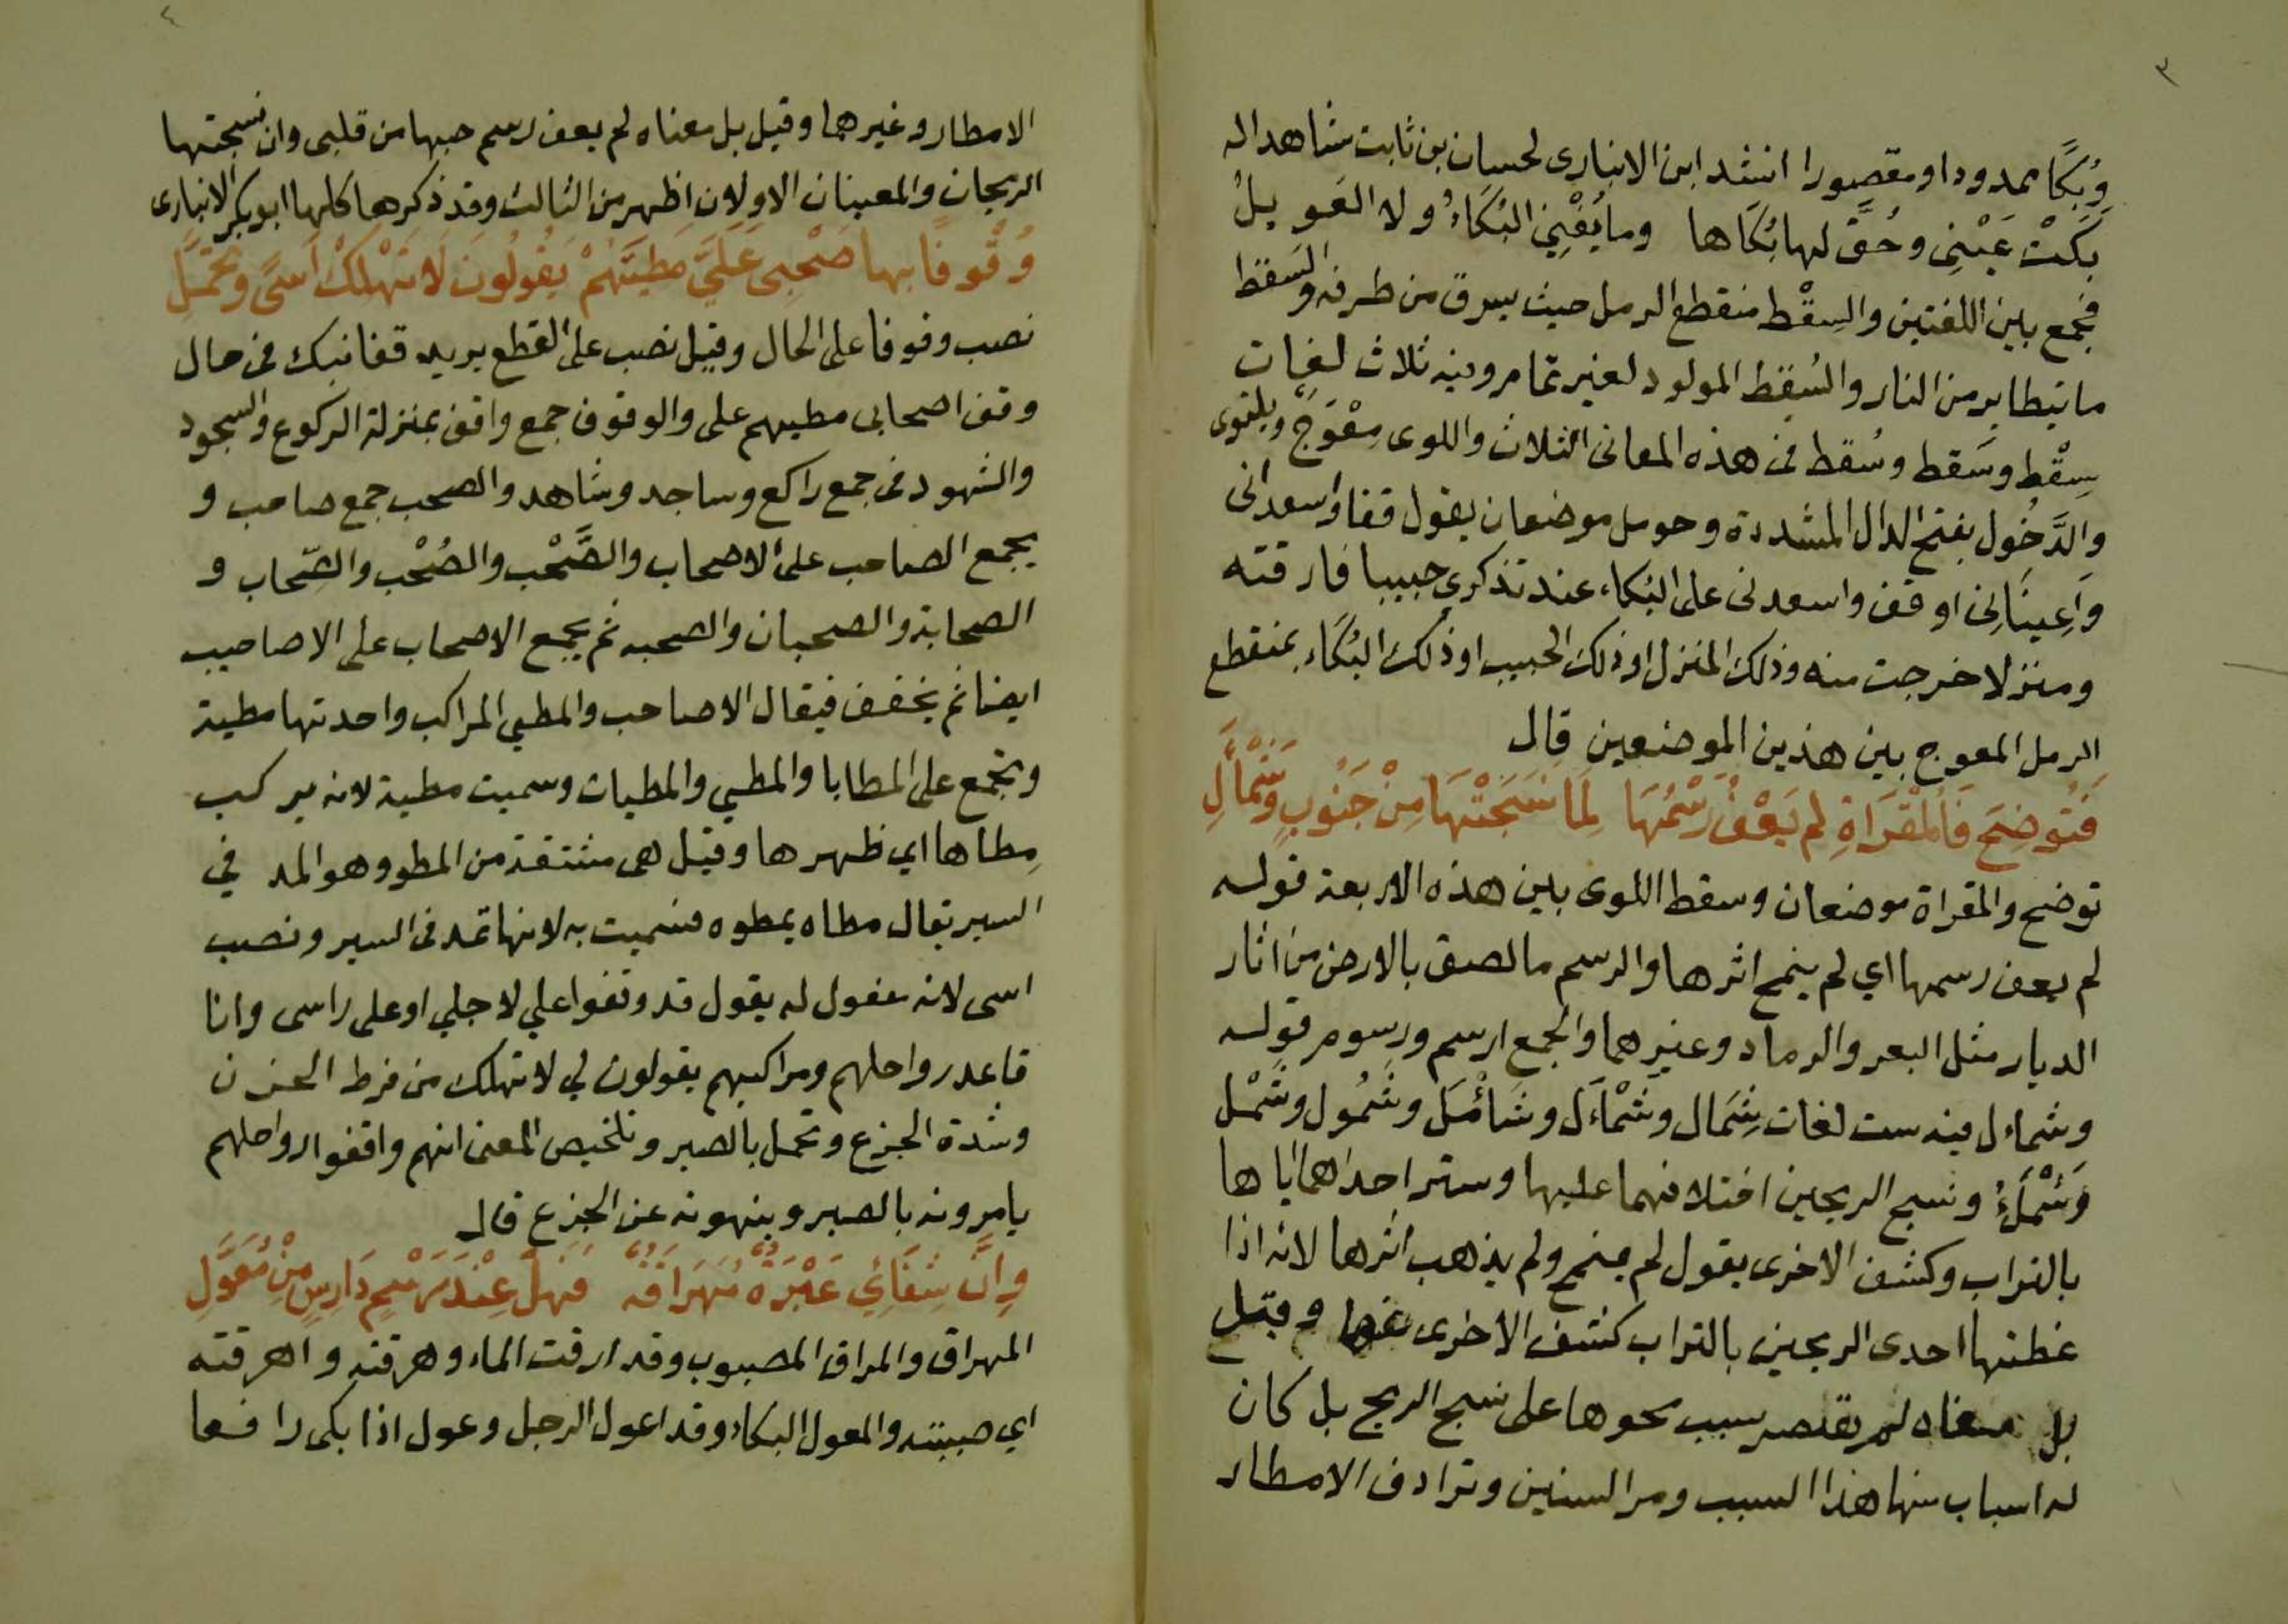 ٣
وبُكًا ممدودا ومقصورا انشد ابن الانبارى لحسان بن ثابت شاهدا له
بَكَتْ عَيْنِى وحُقَّ لها بُكَاها وما يُغْنِى البُكَاءُ ولا العَويلُ
فجمع بين اللغتين والسِقْط منقطع الرمل حيث يسرق من طرفه والسَقط
ما يتطاير من النار والسُقط المولود لغير تمام وفيه ثلاث لغات
سِقْط وسَقط وسُقط فى هذه المعانى الثلاث واللوى مِعْوَجّ ويلتوى
والدَّخُول بفتح الدال المشددة وحومل موضعان يقول قفا واسعدانى
وَاعِينَانِى او قف واسعدنى على البُكاء عند تذكرى حبيبا فارقته
ومنزلا خرجت منه وذلك المنزل او ذلك الحبيب او ذلك البُكَاء بمنقطع
الرمل المعوج بين هذين الموضعين قال
فَتُوضِحَ فَالْمَقْرَاةِ لم يَعْفُ رَسْمُهَا لِمَا نَسَجَتْهَا مِنْ جَنُوبٍ وَشَمْأَلِ
توضح والمقراة موضعان وسقط اللوى بين هذه الاربعة قوله
لم يعف رسمها اي لم ينمح اثرها والرسم ما لصق بالارض من اثار
الديار مثل البعر والرماد وغيرهما والجمع ارسم ورسوم قوله
وشماءل فيه ست لغات شِمَال وشَمْاءَل وشَأْمَل وشَمُول وشَمْل
وَشَمَلٌ ونسج الريحين اختلافهما عليها وستر احداهما اياها
بالتراب وكشف الاخرى يقول لم ينمح ولم يذهب اثرها لانه اذا
غطتها احدى الريحين بالتراب كشف الاخرى عنها وقيل
بل معناه لم يقتصر سبب محوها على نسج الريح بل كان
له اسباب منها هذا السبب ومر السنين وترادف الامطار
٤
الامطار وغيرهما وقيل بل معناه لم يعف رسم حبها من قلبى وان نسجتها
الريحان والمعينان الاولان اظهر من الثالث وقد ذكرها كلها ابو بكر الانبارى
وُقُوفًا بها صَحْبِى عَلَيَّ مَطِيَّهُمْ يَقُولُونَ لَا تَهْلِكْ اَسًى وتَحَمَّلِ
نصب وقوفا على الحال وقيل نصب على القطع يريد قفا نبك فى حال
وقف اصحابى مطيهم على والوقوف جمع واقف بمنزلة الركوع والسجود
والشهود فى جمع راكع وساجد وشاهد والصحب جمع صاحب و
يجمع الصاحب على الاصحاب والصَّحْب والصُحْب والصِّحاب و
الصحابة والصحبان والصحبه ثم يجمع الاصحاب على الاصاحيب
ايضا ثم يخفف فيقال الاصاحب والمطي المراكب واحدتها مطية
وتجمع على المطايا والمطي والمطيات وسميت مطية لانه يركب
مِطاها اي ظهرها وقيل هى مشتقة من المطو وهو المد في
السير يقال مطاه يمطوه فسميت به لانها تمد فى السير ونصب
اسى لانه مفعول له يقول قد وقفوا علي لاجلي او على راسى وانا
قاعد رواحلهم ومراكبهم يقولون لي لا تهلك من فرط الحزن
وشدة الجزع وتحمل بالصبر وتلخيص المعنى انهم واقفوا رواحلهم
يامرونه بالصبر وينهونه عن الجزع قال
وِانَّ شِفَائِي عَبْرَةٌ مُهَرَاقَةٌ فَهَلْ عِنْدَ رَسْمٍ دَارِسٍ مِنْ مُعَوَّلِ
المهراق والمراق المصبوب وقد ارقت الماء وهرقته واهرقته
اي صببته والمعول البكاء وقد اعول الرجل وعول اذا بكى رافعا